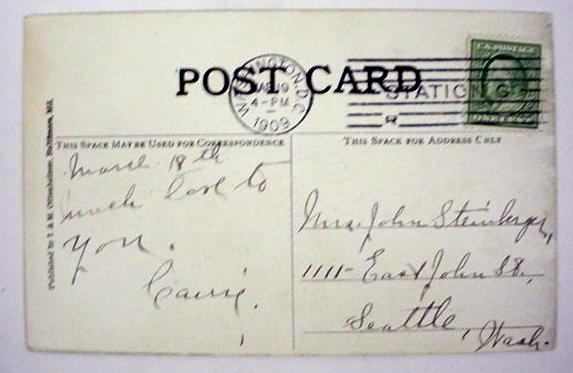 POST CARD
WASHINGTON, D.C.
MAR 19
4-PM
1909
STATION G
U.S. POSTAGE
THIS SPACE MAY BE USED FOR CORRESPONDENCE
THIS SPACE FOR ADDRESS ONLY
Published by I. & M. Ottenheimer, Baltimore, Md.
March 18th
much love to
you.
Carrie.
Mrs. John Steinberger,
1111- East John St.,
Seattle,
Wash.